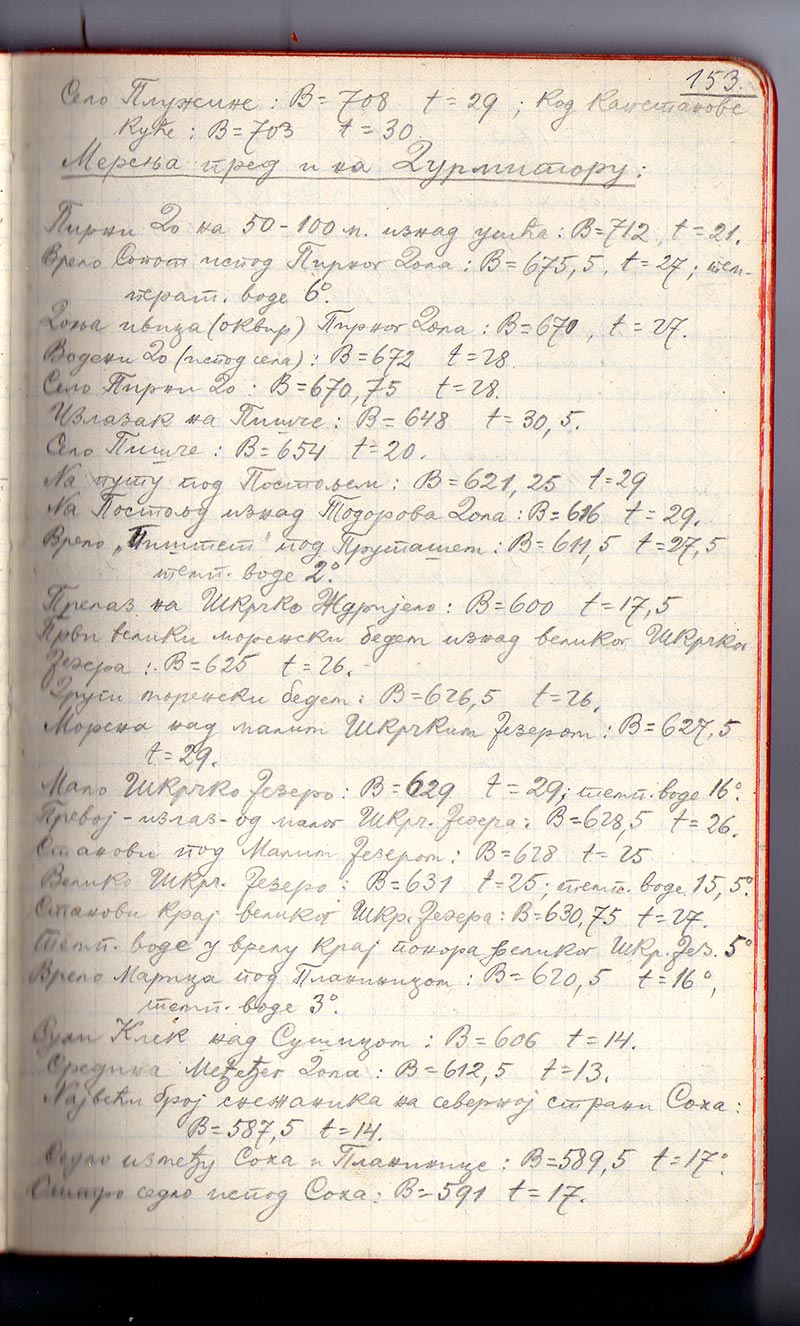 153.
Село Плужине: B=708 t=29; код Капетанове
куће: B=703 t=30.
Мерења пред и на Дурмитору:
Пирни До на 50-100 м. изнад ушћа: B=712, t=21.
Врело Сопот испод Пирног Дола: B=675,5, t=27; тем-
перат. воде 6°.
Доња ивица (оквир) Пирног Дола: B=670, t=27.
Водени До (испод села): B=672 t=28.
Село Пирни До: B=670,75 t=28.
Излазак на Пишче: B=648 t=30,5.
Село Пишче: B=654 t=20.
На путу под Постољем: B=621,25 t=29
На Постољу изнад Тодорова Дола: B=616 t=29.
Врело „Пиштет" под Пруташем: B=611,5 t=27,5
темп. воде 2°.
Прелаз на Шкрчко Ждријело: B=600 t=17,5
Први велики моренски бедем изнад великог Шкрчког
Језера: B=625 t=26.
Други моренски бедем: B=626,5 t=26.
Морена над малим Шкрчким Језером: B=627,5
t=29.
Мало Шкрчко Језеро: B=629 t=29; темп. воде 16°.
Превој-излаз-од малог Шкрч. Језера: B=628,5 t=26.
Станови под Малим Језером: B=628 t=25
Велико Шкрч. Језеро: B=631 t=25; темп. воде 15,5°.
Станови крај великог Шкр. Језера: B=630,75 t=27.
Темп. воде у врелу крај понора великог Шкр. Јез. 5°
Врело Марица под Планиницом: B=620,5 t=16°,
темп. воде 3°.
Клек над Сушицом: B=606 t=14.
Средина Међеђег Дола: B=612,5 t=13.
Највећи број снежаника на северној страни Соха:
B=587,5 t=14.
Седло између Соха и Планинице: B=589,5 t=17°.
Оштро седло испод Соха: B=591 t=17.